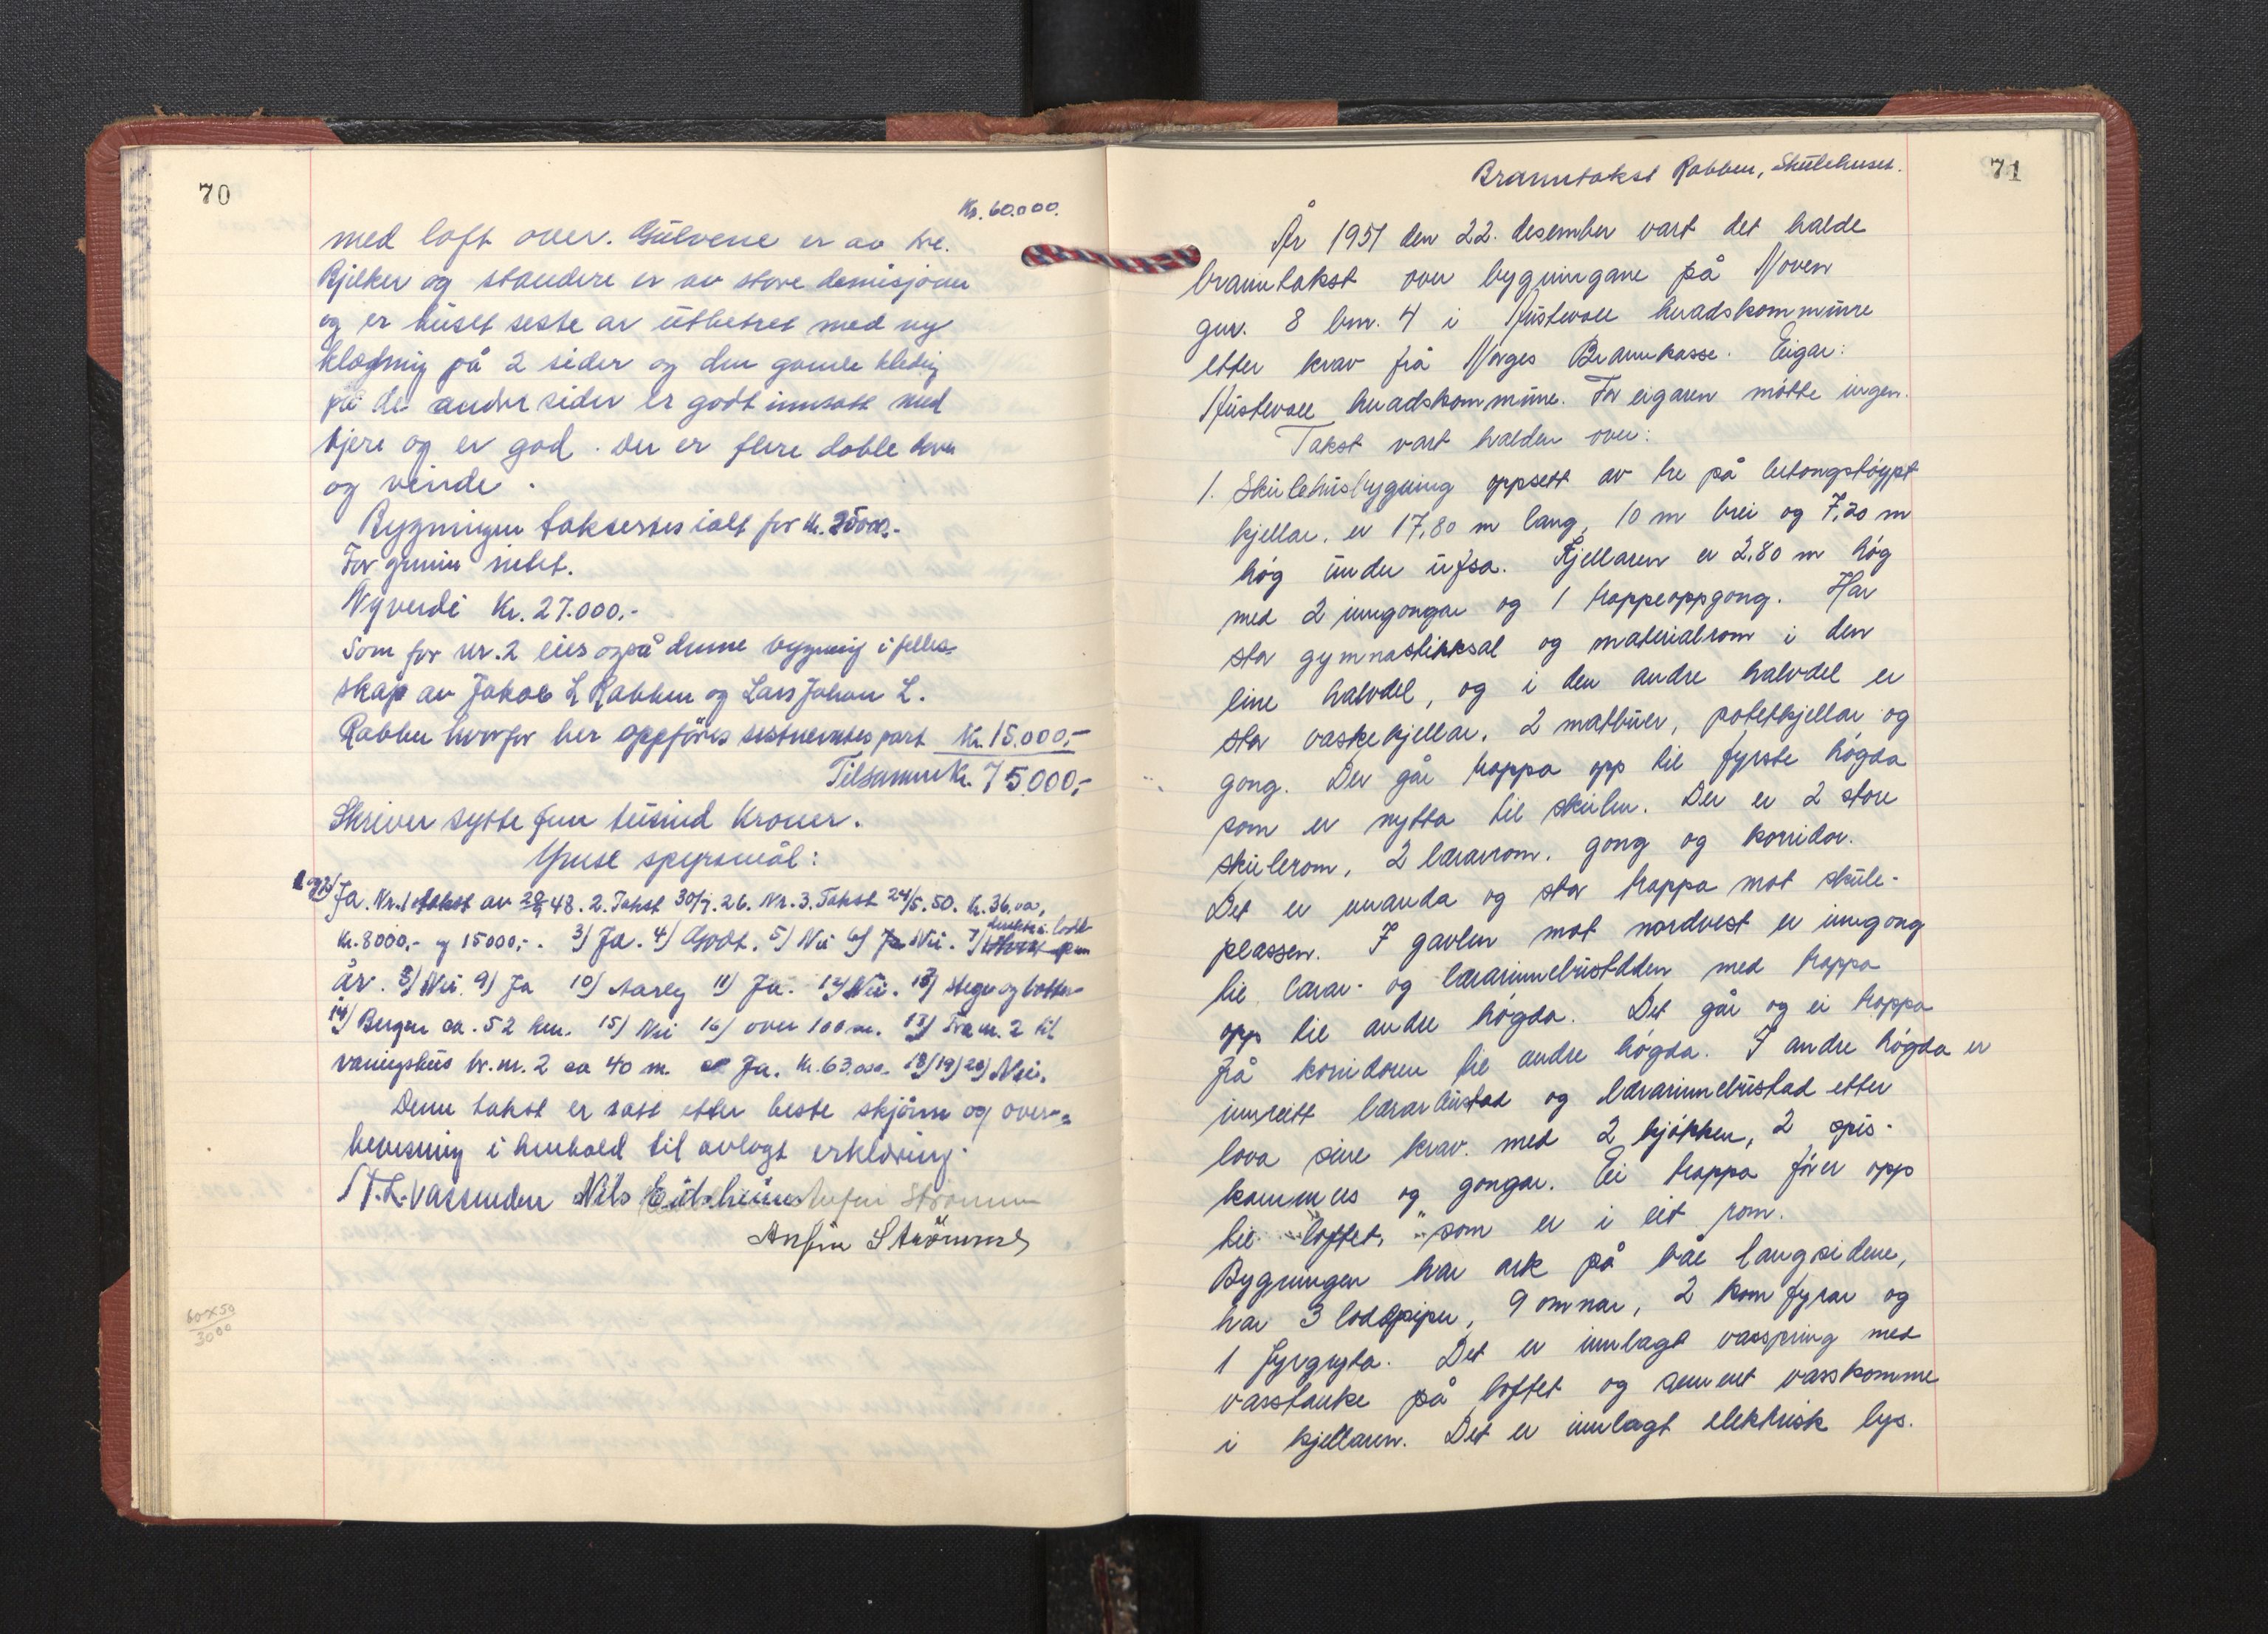 70
Kr. 60.000.
med loft over. Gulvene er av tre.
Bjelker og standere er av store demisjoner
og er huset siste år utbetret med ny
kledning på 2 sider og den gamle kledig
på de andre sider er godt innsatt med
tjere og er god. Der er flere doble
og vinde.
Bygningen takseres ialt for kr. 25000.-
For grunn intet.
Nyverdi Kr. 27.000.-
Som for nr. 2 eies også denne bygning i felles-
skap av Jakob L Rabben og Lars Johan L.
Rabben hvorfor her oppföres sistnevntes part Kr. 15.000,-
Tilsammen Kr. 75.000,-
Skriver sytte fem tusind Kroner.
Ymse spørsmål:
1 og 2) Ja. Nr. 1 takst av 29/9 48. 2. Takst 30/7. 26. Nr. 3. Takst 24/5. 50. Kr. 36.000,
Kr. 8000,- og 15000,-. 3) Ja. 4) Godt. 5) Nei 6) Ja Nei. 7)
år. 8) Nei. 9) Ja 10) 11) Ja. 12) Nei. 13) Stege og bøtter
14) Bergen ca. 52 km. 15) Nei 16) over 100 m. 17) Fra nr. 2 til
våningshus br. nr. 2 ca 40 m. Ja. Kr. 63.000. 18/19/20) Nei.
Denne takst er satt etter beste skjönn og over-
bevisning i henhold til avlagt erklæring.
N. L. Vassenden Nils Eidsheim Anfin Strömme
Anfin Strömme
60x50
3000
Branntakst Rabben, Skulehuset.
71
År 1951 den 22. desember vart det halde
branntakst over bygningane på Moven
gnr. 8 bnr. 4 i Austevoll heradskommune
etter krav frå Norges Brannkasse. Eigar:
Austevoll heradskommune. For eigaren møtte ingen.
Takst vart halden over:
1. Skulehusbygning oppsett av tre på betongstøypt
kjellar, er 17,80 m lang, 10 m brei og 7,20 m
høg under ufsa. Kjellaren er 2,80 m høg
med 2 inngongar og 1 trappeoppgong. Har
stor gymnastikksal og materialrom i den
eine halvdel, og i den andre halvdel er
stor vaskekjellar, 2 matbuer, potetkjellar og
gong. Der går trappa opp til fyrste høgda
som er nytta til skulen. Der er 2 store
skulerom, 2 lærarrom, gong og korridor.
Det er veranda og stor trappa mot skule-
plassen. I gavlen mot nordvest er inngong
til lærar- og lærarinnebustaden med trappa
opp til andre høgda. Det går og ei trappa
frå koridoren til andre høgda. I andre høgda er
innreitt lærarbustad og lærarinnebustad etter
lova sine krav. med 2 kjøkken, 2 spis-
kammers og gongar. Ei trappa fører opp
til loftet, som er i eit rom.
Bygningen har ark på båe langsidene,
har 3 loddpiper, 9 omnar, 2 komfyrar og
1 fyrgryta. Det er innlagt vasspring med
vasstanke på loftet og sement vasskomme
i kjellaren. Det er innlagt elektrisk lys.